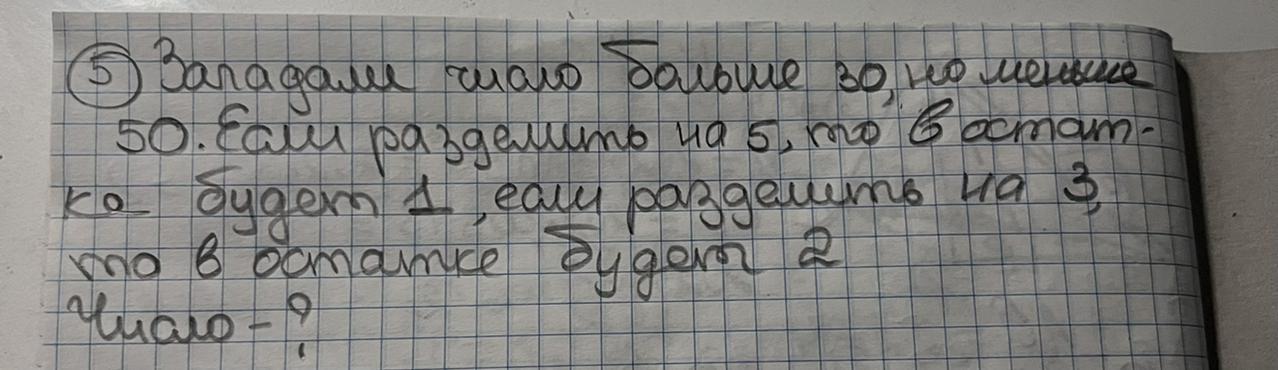 ⑤ Загадали число больше 30, но меньше
50. Если разделить на 5, то в остат-
ке будет 1, если разделить на 3,
то в остатке будет 2
Число - ?